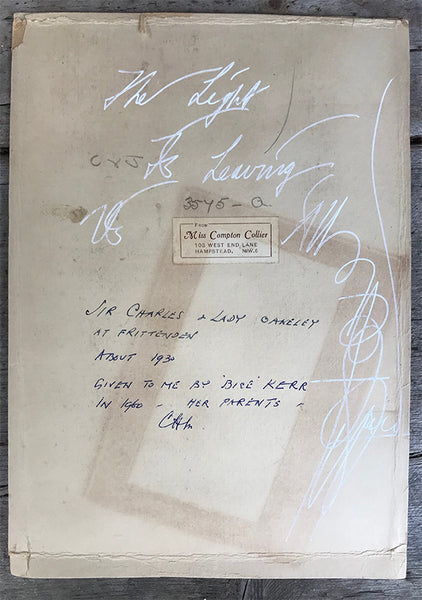 The Light
Is Leaving
Us
3545 - a.
From
Miss Compton Collier
103 WEST END LANE
HAMPSTEAD, N.W.6
SIR CHARLES & LADY OAKELEY
AT FRITTENDEN
ABOUT 1930
GIVEN TO ME BY 'BICE' KERR
IN 1960 - HER PARENTS -